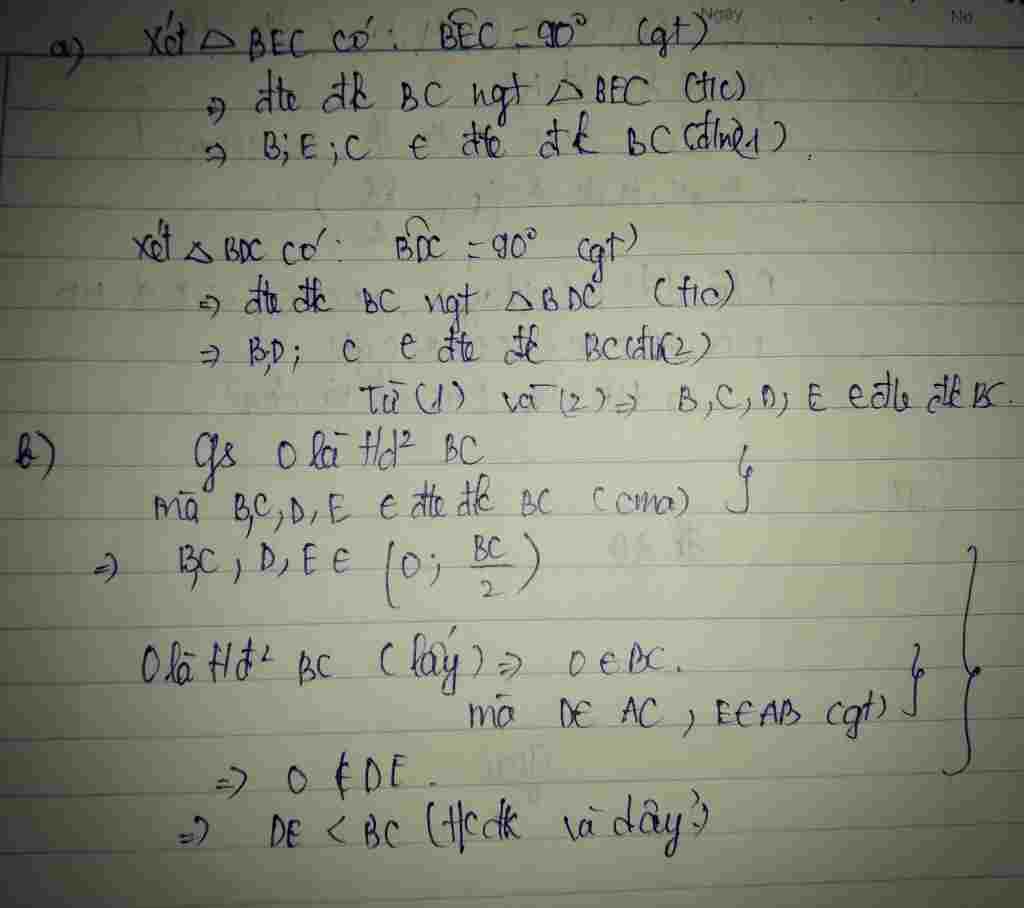 Ngay No
a) Xét △ BEC có : BEC = 90° (gt)
=> đtr đk BC ngt △ BEC (t/c)
=> B; E ; C ∈ đtr đk BC (1)
Xét △ BDC có : BDC = 90° (gt)
=> đtr đk BC ngt △ BDC (t/c)
=> B, D; C ∈ đtr đk BC (2)
Từ (1) và (2) => B, C, D, E ∈ đtr đk BC.
b) Gs O là tđ² BC
mà B, C, D, E ∈ đtr đk BC (cma) }
=> B, C, D, E ∈ (O; BC/2)
O là tđ² BC (lấy) => O ∈ BC.
mà D ∈ AC, E ∈ AB (gt) }
=> O ∉ DE.
=> DE < BC (t/c đk và dây)